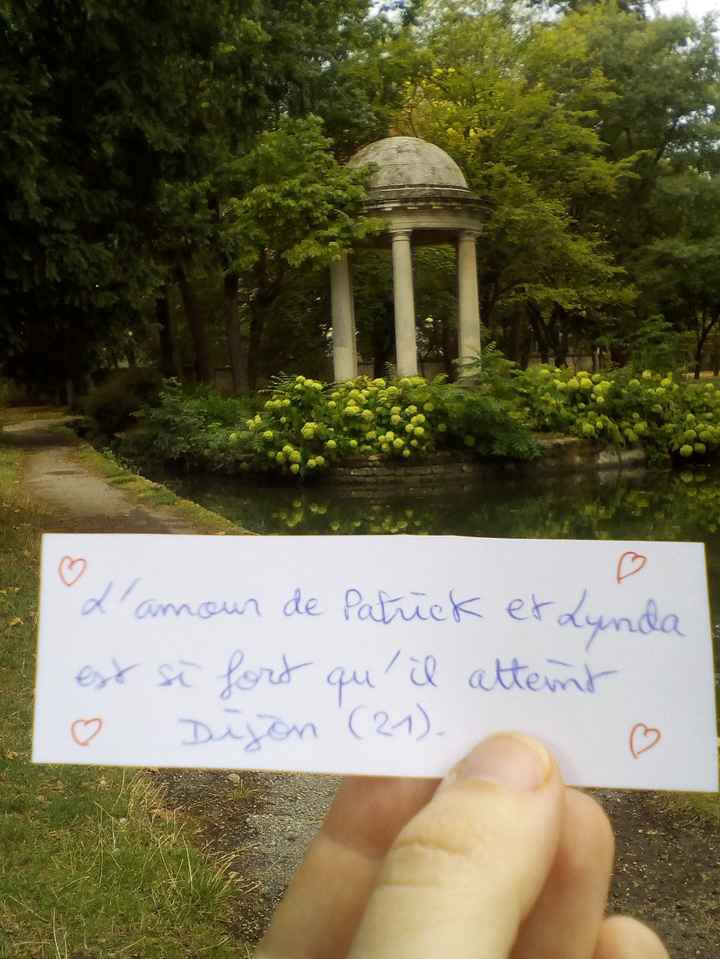 L'amour de Patrick et Lynda
est si fort qu'il atteint
Dijon (21).